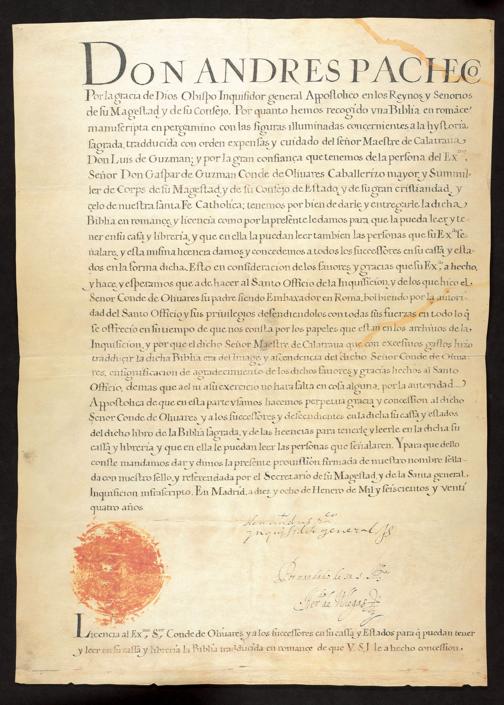 DON ANDRES PACHECO
Por la gracia de Dios Obispo Inquisidor general Appostolico en los Reynos y Senorios
de su Magestad, y de su Consejo. Por quanto hemos recogido vna Biblia en romāce
manuscripta en pergamino con las figuras illuminadas concernientes a la hystoria
sagrada, tradducida con orden expensas y cuidado del señor Maestre de Calatraua
Don Luis de Guzman; y por la gran confiança que tenemos de la persona del Ex.mo
Señor Don Gaspar de Guzman Conde de Oliuares Caballerizo mayor, y Summil-
ler de Corps de su Magestad, y de su Consejo de Estado, y de su gran cristiandad y
çelo de nuestra santa Fe Catholica; tenemos por bien de darle, y entregarle la dicha
Biblia en romance, y licencia como por la presente le damos para que la pueda leer y te-
ner en su casa y libreria, y que en ella la puedan leer tambien las personas que su Ex.a se-
ñalare, y esta misma licencia damos y concedemos a todos los successores en su cassa y esta-
dos en la forma dicha. Esto en consideracion de los fauores y gracias que su Ex.a a hecho,
y hace, y esperamos que a de hacer al Santo Officio de la Inquisicion, y de los que hiço el
Señor Conde de Oliuares su padre siendo Embaxador en Roma, bolbiendo por la autori-
dad del Santo Officio y sus priuilegios defendiendolos con todas sus fuerzas en todo lo q̄
se offrecio en su tiempo de que nos consta por los papeles que estan en los archiuos de la
Inquisicion, y por que el dicho Señor Maestre de Calatraua que con excessiuos gastos hizo
tradducir la dicha Biblia era del linage y ascendencia del dicho Señor Conde de Oliua-
res, en significacion de agradecimento de los dichos fauores y gracias hechos al Santo
Officio, demas que a el ni a su exercicio no hara falta en cosa alguna, por la autoridad
Appostolica de que en esta parte vsamos hacemos perpetua gracia y concession al dicho
Señor Conde de Oliuares y a los successores y desfendientes en la dicha su cassa y estados
del dicho libro de la Biblia sagrada, y de las licencias para tenerle y leerle en la dicha su
cassa y libreria y que en ella le puedan leer las personas que señalaren. Y para que dello
conste mandamos dar y dimos la presente prouission firmada de nuestro nombre sella-
da con nuestro sello, y referendada por el Secretario de su Magestad y de la Santa general
Inquisicion infrascripto. En Madrid, a diez y ocho de Henero de Mil y seiscientos y venti
quatro años
ynquisidor general
Licencia al Ex.mo S.or Conde de Oliuares y a los successores en su cassa y Estados para q̄ puedan tener
y leer en su cassa y libreria la Biblia tradducida en romance de que V. S. I. le a hecho concession.